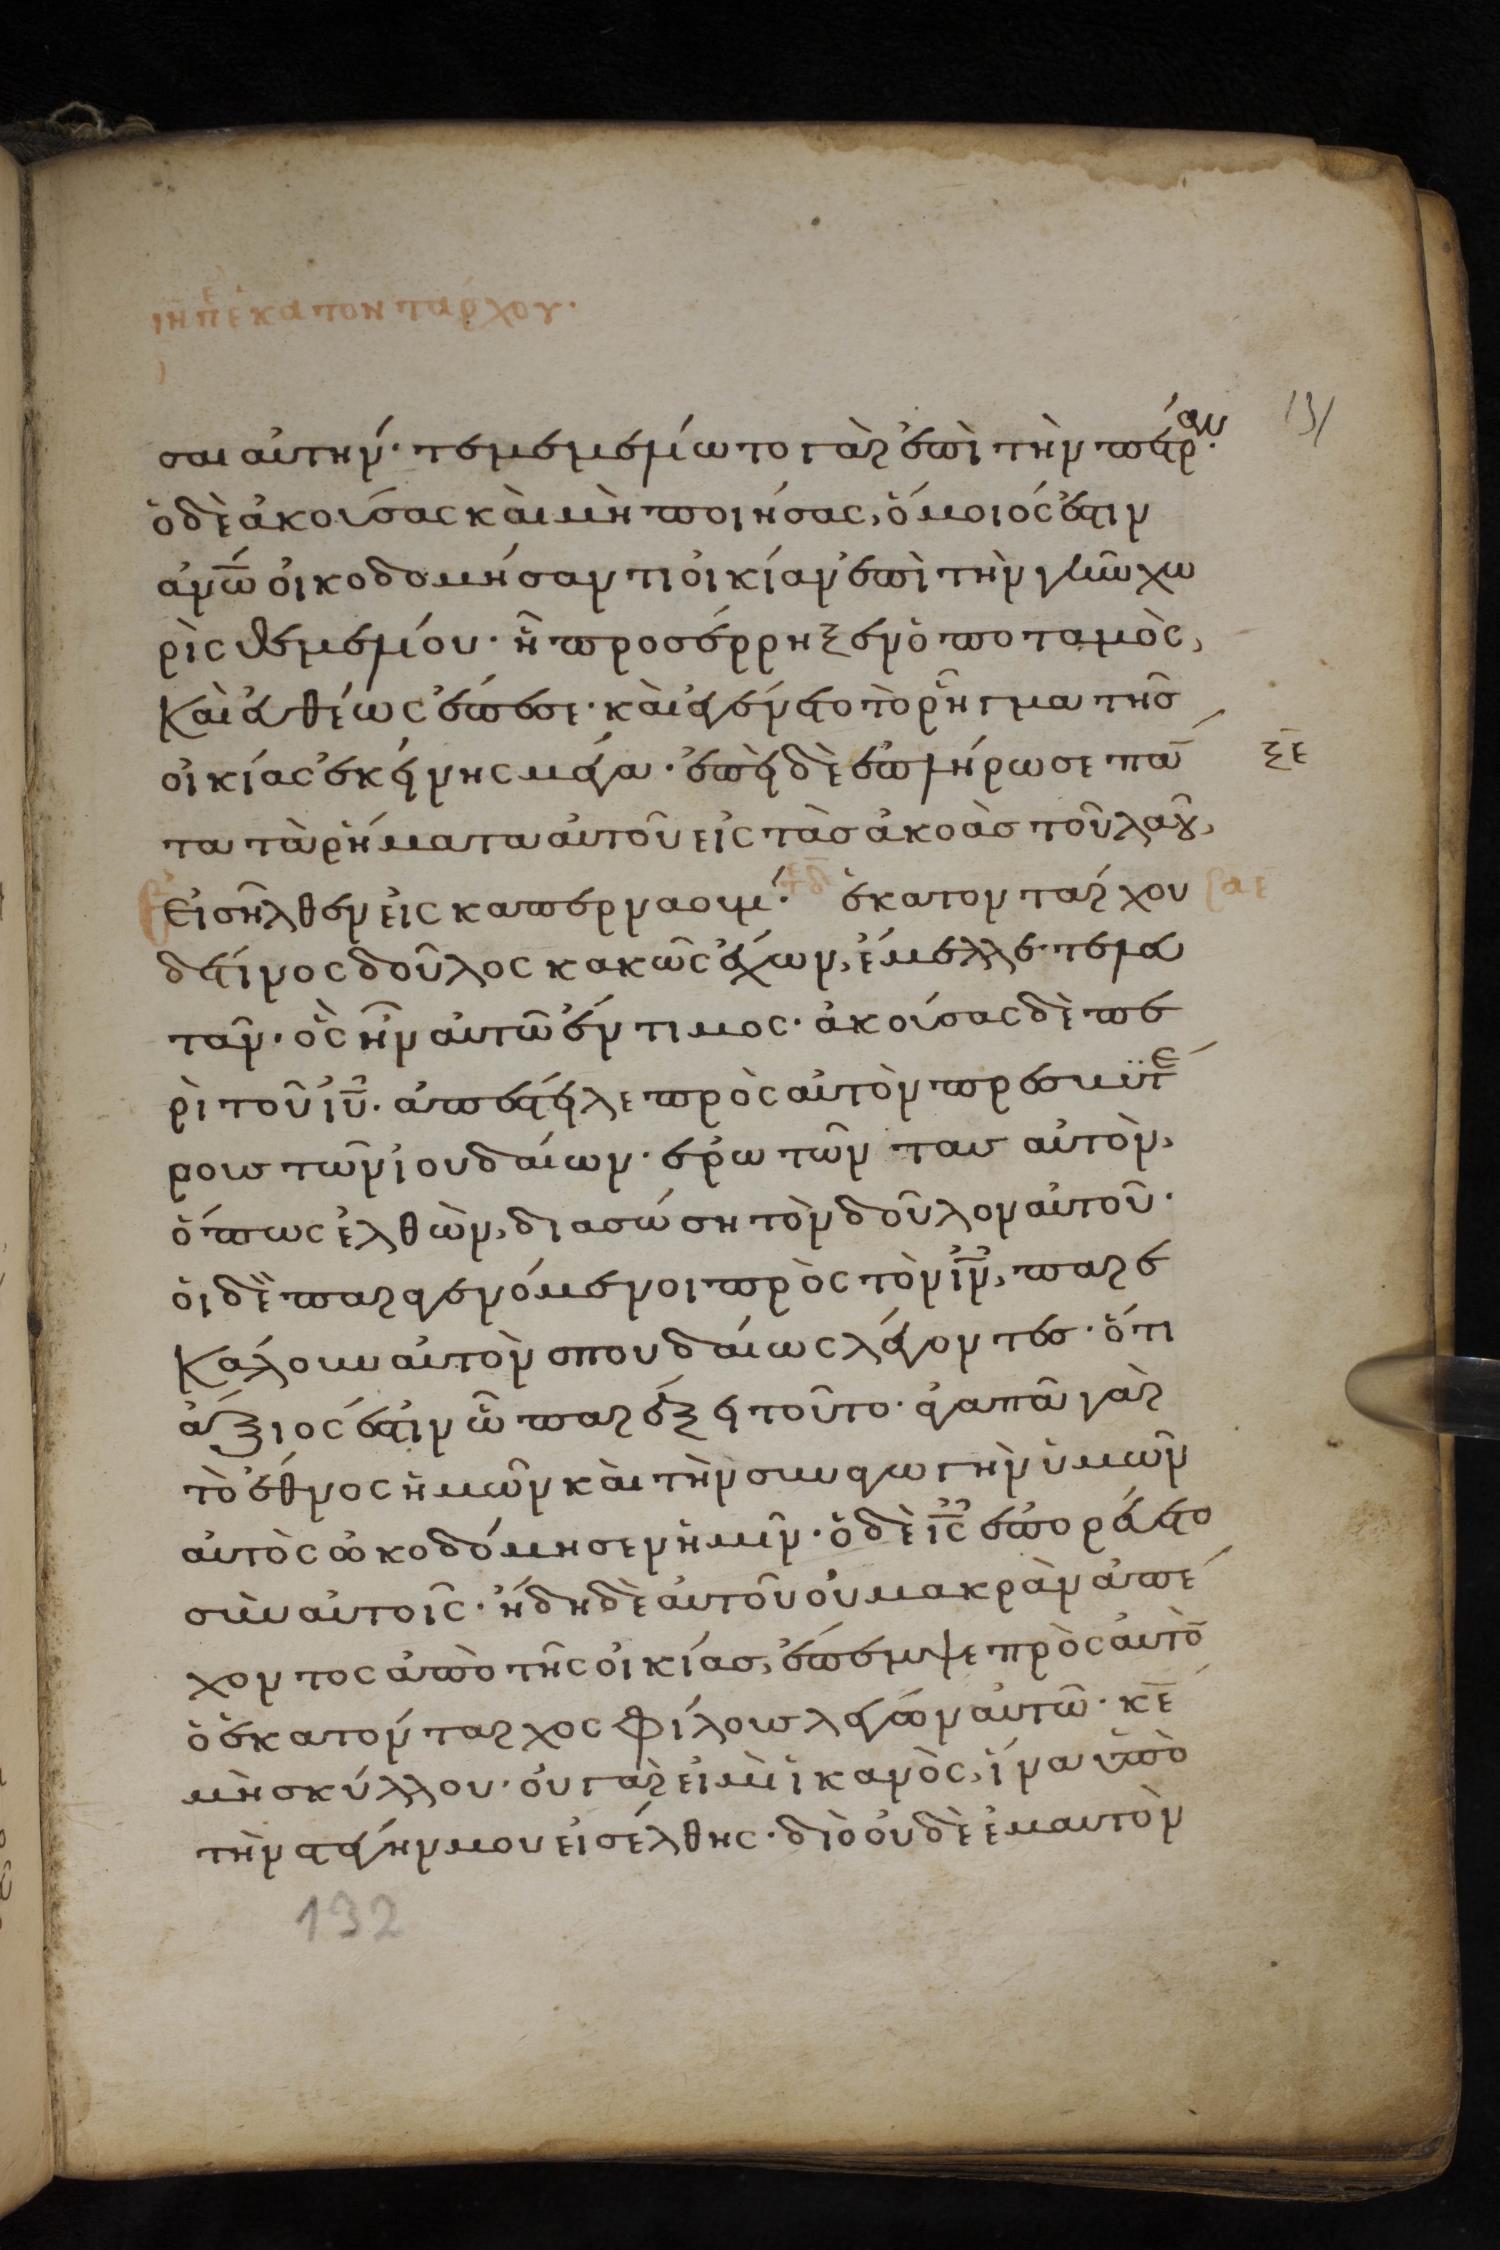 ιη π̅ε̅ ἑκατοντάρχου·
131
σαι αὐτήν· τεθεμελίωτο γὰρ ἐπὶ τὴν πέτραν·
ὁ δὲ ἀκούσας καὶ μὴ ποιήσας, ὅμοιός ἐστιν
ἀν̅ω̅ οἰκοδομήσαντι οἰκίαν ἐπὶ τὴν γῆν χω
ρὶς θεμελίου· ἧ προσέρρηξεν ὁ ποταμὸς,
Καὶ εὐθέως ἔπεσε· καὶ ἐγένετο τὸ ῥῆγμα τῆς
οἰκίας ἐκείνης μέγα· ἐπεὶ δὲ ἐπλήρωσε πα̅
ξ̅ε̅
τα τὰ ῥήματα αὐτοῦ εἰς τὰς ἀκοὰς τοῦ λαοῦ,
Εἰσῆλθεν εἰς καπερναουμ· ἑκατοντάρχου
δέ τινος δοῦλος κακῶς ἔχων, ἔμελλε τελευ
τᾶν· ὃς ἦν αὐτῶ ἔντιμος· ἀκούσας δὲ πε
ρὶ τοῦ ἰ̅υ̅· ἀπέστειλε πρὸς αὐτὸν πρεσβυτέ
ρους τῶν ἰουδαίων· ἐρωτῶν τας αὐτὸν,
ὅπως ἐλθὼν, διασώση τὸν δοῦλον αὐτοῦ·
οἱ δὲ παραγενόμενοι πρὸς τὸν ἰ̅ν̅, παρε
Κάλουν αὐτὸν σπουδαίως λέγοντες· ὅτι
ἄξιός ἐστιν ὧ παρέξει τοῦτο· ἀγαπᾶ γὰρ
τὸ ἔθνος ἡμῶν καὶ τὴν συναγωγὴν ὑμῶν
αὐτὸς ὠκοδόμησεν ἡμῖν· ὁ δὲ ἰ̅ς̅ ἐπορεύετο
σὺν αὐτοῖς· ἤδη δὲ αὐτοῦ οὐ μακρὰν ἀπέ
χοντος ἀπὸ τῆς οἰκίας, ἔπεμψε πρὸς αὐτὸ̅
ὁ ἑκατόνταρχος φίλους λέγων αὐτῶ· κ̅ε̅
μὴ σκύλλου· οὐ γὰρ εἰμὶ ἱκανὸς, ἵνα ὑπὸ
τὴν στέγην μου εἰσέλθης· διὸ οὐδὲ ἐμαυτὸν
132